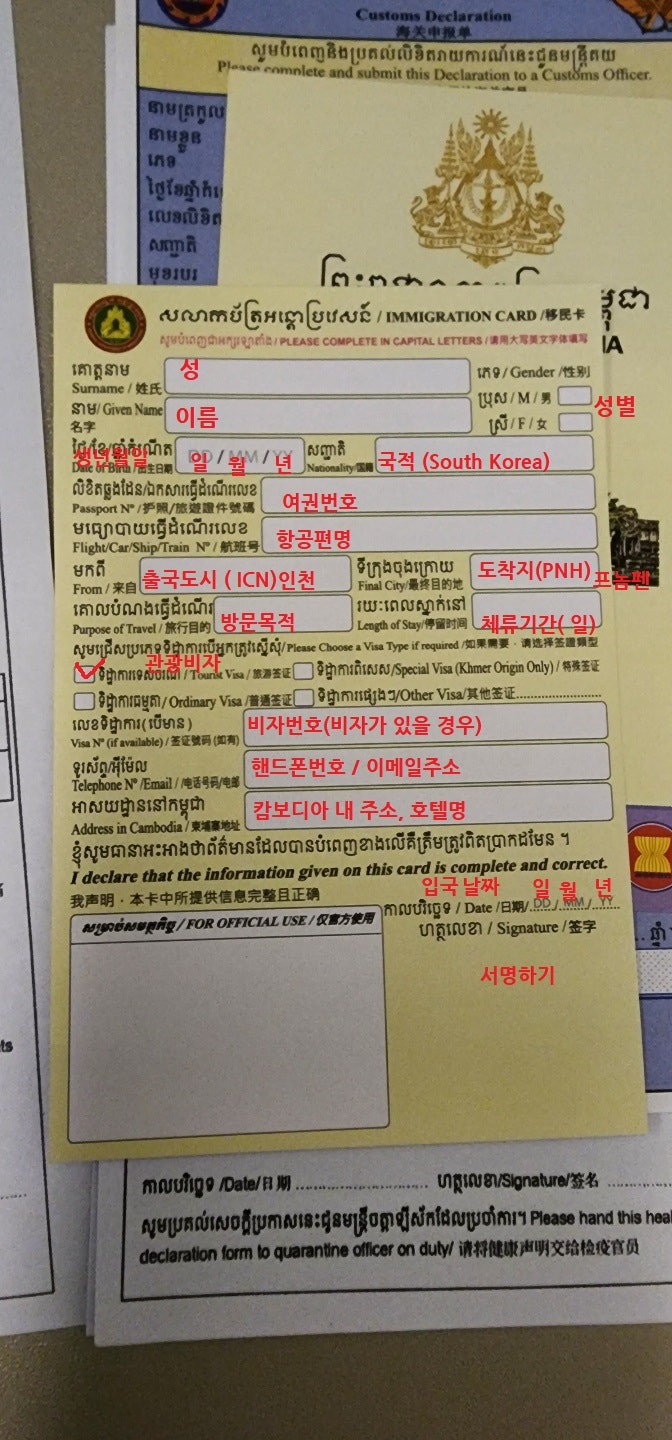 Customs Declaration
海关申报单
សូមបំពេញនិងប្រគល់លិខិតរាយការណ៍នេះជូនមន្ត្រីគយ
Please complete and submit this Declaration to a Customs Officer.
នាមត្រកូល
នាមខ្លួន
ភេទ
សញ្ជាតិ
មុខរបរ
សលាកប័ត្រអន្តោប្រវេសន៍ / IMMIGRATION CARD /移民卡
សូមបំពេញជាអក្សរឡាតាំង / PLEASE COMPLETE IN CAPITAL LETTERS / 请用大写英文字体填写
គោត្តនាម
Surname / 姓氏
성
ភេទ / Gender /性别
ប្រុស / M / 男
នាម/ Given Name
名字
이름
ស្រី / F / 女
성별
ថ្ងៃ/ខែ/ឆ្នាំកំណើត
Date of Birth / 出生日期
생년월일
DD / MM / YY
일 월 년
សញ្ជាតិ
Nationality/国籍
국적 (South Korea)
លិខិតឆ្លងដែន/ឯកសារធ្វើដំណើរលេខ
Passport Nº / 护照/旅遊證件號碼
여권번호
មធ្យោបាយធ្វើដំណើរលេខ
Flight/Car/Ship/Train Nº / 航班号
항공편명
មកពី
From / 来自
출국도시 ( ICN)인천
ទីក្រុងចុងក្រោយ
Final City/最终目的地
도착지(PNH) 프놈펜
គោលបំណងធ្វើដំណើរ
Purpose of Travel / 旅行目的
방문목적
រយៈពេលស្នាក់នៅ
Length of Stay/停留时间
체류기간( 일)
សូមជ្រើសប្រភេទទិដ្ឋាការបើអ្នកត្រូវស្នើសុំ/Please Choose a Visa Type if required /如果需要﹐请选择签證類型
관광비자
ទិដ្ឋាការទេសចរណ៍ / Tourist Visa / 旅游签证
ទិដ្ឋាការពិសេស/Special Visa (Khmer Origin Only) / 特殊签证
ទិដ្ឋាការធម្មតា / Ordinary Visa /普通签证
ទិដ្ឋាការផ្សេងៗ/Other Visa/其他签证......................
លេខទិដ្ឋាការ (បើមាន)
Visa Nº (if available) / 签证號码 (如有)
비자번호(비자가 있을 경우)
ទូរស័ព្ទ/អ៊ីម៉ែល
Telephone Nº /Email / 电话号码/电邮
핸드폰번호 / 이메일주소
អាសយដ្ឋាននៅកម្ពុជា
Address in Cambodia / 柬埔寨地址
캄보디아 내 주소, 호텔명
ខ្ញុំសូមធានាអះអាងថាព័ត៌មានដែលបានបំពេញខាងលើគឺត្រឹមត្រូវពិតប្រាកដមែន ។
I declare that the information given on this card is complete and correct.
我声明﹐本卡中所提供信息完整且正确
입국 날짜 일 월 년
កាលបរិច្ឆេទ / Date /日期/..DD../..MM../..YY..
សម្រាប់សមត្ថកិច្ច / FOR OFFICIAL USE / 仅官方使用
ហត្ថលេខា / Signature /签字
서명하기
កាលបរិច្ឆេទ /Date/日期 ..............................
ហត្ថលេខា/Signature/签名 ....................
សូមប្រគល់សេចក្តីប្រកាសនេះជូនមន្ត្រីចត្តាឡីស័កដែលប្រចាំការ។ Please hand this heal
declaration form to quarantine officer on duty/ 请将健康声明交给检疫官员